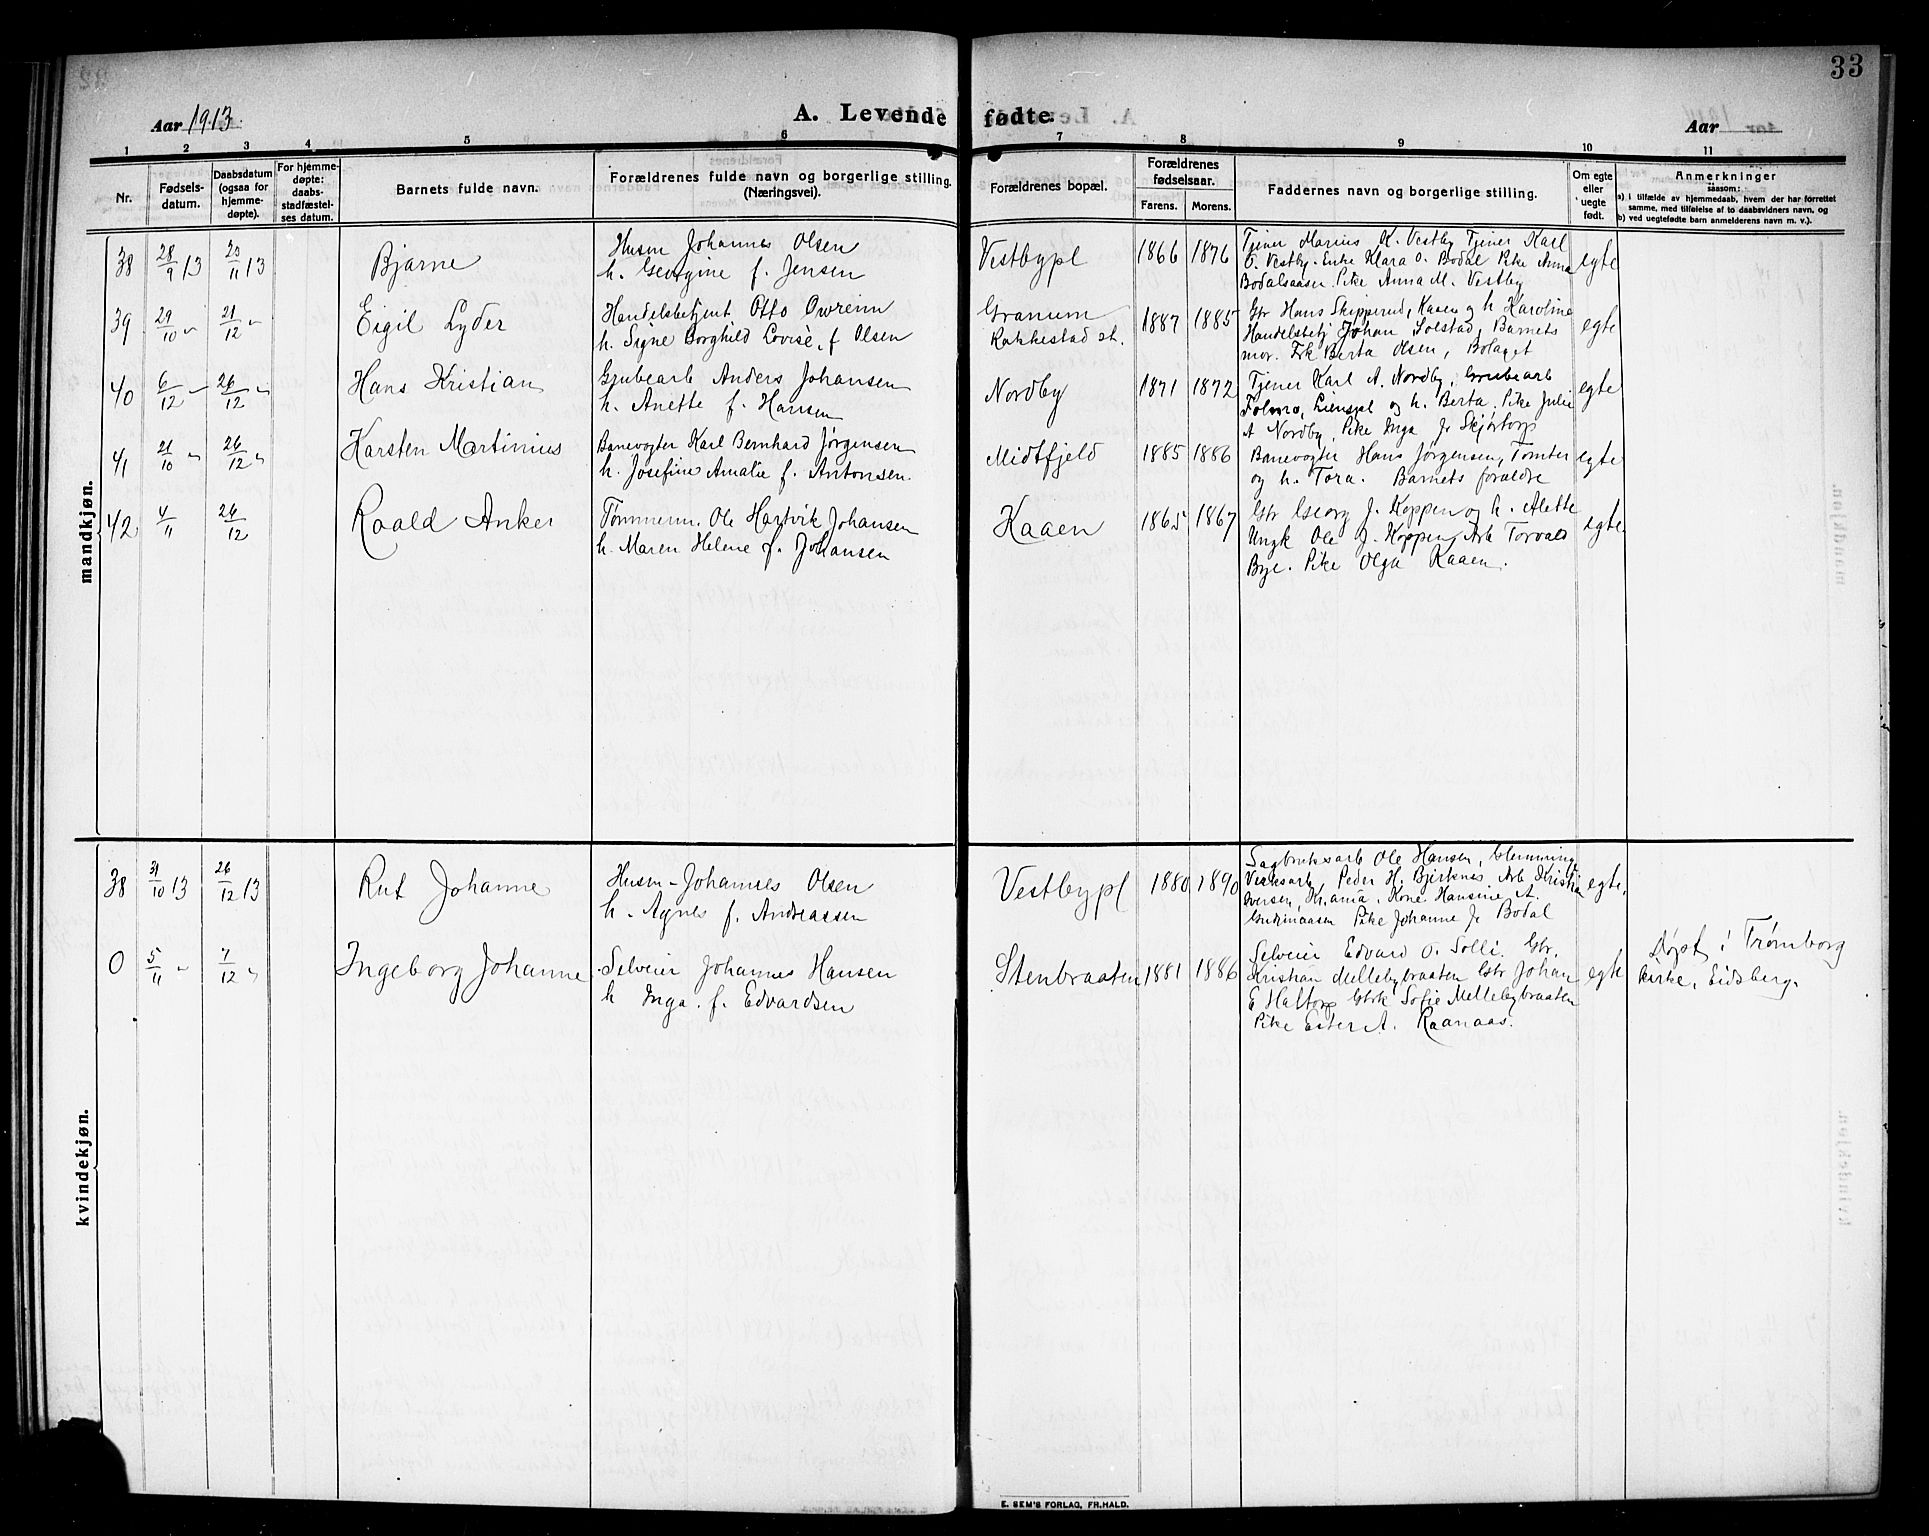 33
Aar 1913.
A. Levende fødte.
Aar
1 2 3 4 5 6 7 8 9 10 11
Nr.
Fødsels-
datum.
Daabsdatum
(ogsaa for
hjemme-
døpte).
For hjemme-
døpte:
daabs-
stadfæstel-
ses datum.
Barnets fulde navn.
Forældrenes fulde navn og borgerlige stilling.
(Næringsvei).
Forældrenes bopæl.
Forældrenes
fødselsaar.
Farens. Morens.
Faddernes navn og borgerlige stilling.
Om egte
eller
uegte
født.
Anmerkninger
saasom:
a) i tilfælde av hjemmedaab, hvem der har forrettet
samme, med tilføielse af to daabsvidners navn, og
b) ved uegtefødte barn anmelderens navn m. v.).
mandkjøn.
38 28/9 13 23/11 13 Bjarne
Husm Johannes Olsen
h. Georgine f. Jensen
Vestbypl 1866 1876
Tjener Marius K. Vestby Tjener Karl
O. Vestby. Enke Klara O. Bodal Pike Anna
Bodalsaasen. Pike Anna M. Vestby
egte
39 29/10 " 21/12 " Eigil Lyder
Handelsbetjent Otto Øvreim
h. Signe Borghild Lovise, f Olsen
Granum
Rakkestad st.
1887 1885
Gbr Hans Skipperud, Kaaen og h Karoline
Handelsbetj Johan Solstad, Barnets
mor. Frk Berta Olsen, Bolaget
egte
40 6/12 " 26/12 " Hans Kristian
Grubearb Anders Johansen
h. Anette f. Hansen
Nordby 1871 1872
Tjener Karl A. Nordby, Grubearb
Lienspl og h. Berta. Pike Julie
A Nordby, Pike Inga J. Skjørtorp
egte
41 21/10 " 26/12 " Karsten Martinius
Banevogter Karl Bernhard Jørgensen
h. Josefine Amalie f. Antonsen.
Midtfjeld 1885 1886
Banevogter Hans Jørgensen, Tomter
og h. Tora. Barnets forældre
egte
42 4/11 26/12 Roald Anker
Tømmerm. Ole Hartvik Johansen
h. Maren Helene f. Johansen
Kaaen 1865 1867
Gbr Georg J. Koppen og h. Alette
Ungk Ole J. Koppen, Arb Torvald
Bye. Pike Olga Kaaen.
egte
kvindekjøn.
38 31/10 13 26/12 13 Rut Johanne
Husm Johannes Olsen
h. Agnes f. Andreassen
Vestbypl 1880 1890
Sagbruksarb Ole Hansen, Glemming
Verksarb Peder H. Bjerknes Arb Kristia
Iversen, Kr.ania, Kone Hansine A.
Pike Johanne J. Bodal
egte.
0 5/11 " 7/12 " Ingeborg Johanne
Selveier Johannes Hansen
h Inga f. Edvardsen
Stenbraaten 1881 1886
Selveier Edvard O. Solli. Gbr.
Kristian Mellebybraaten Gbr Johan
E Haltorp Gbrk Sofie Mellebybraaten
Pike Ester A. Raanaas.
egte
Døpt i Trømborg
kirke, Eidsberg.
E. SEM'S FORLAG, FR.HALD.